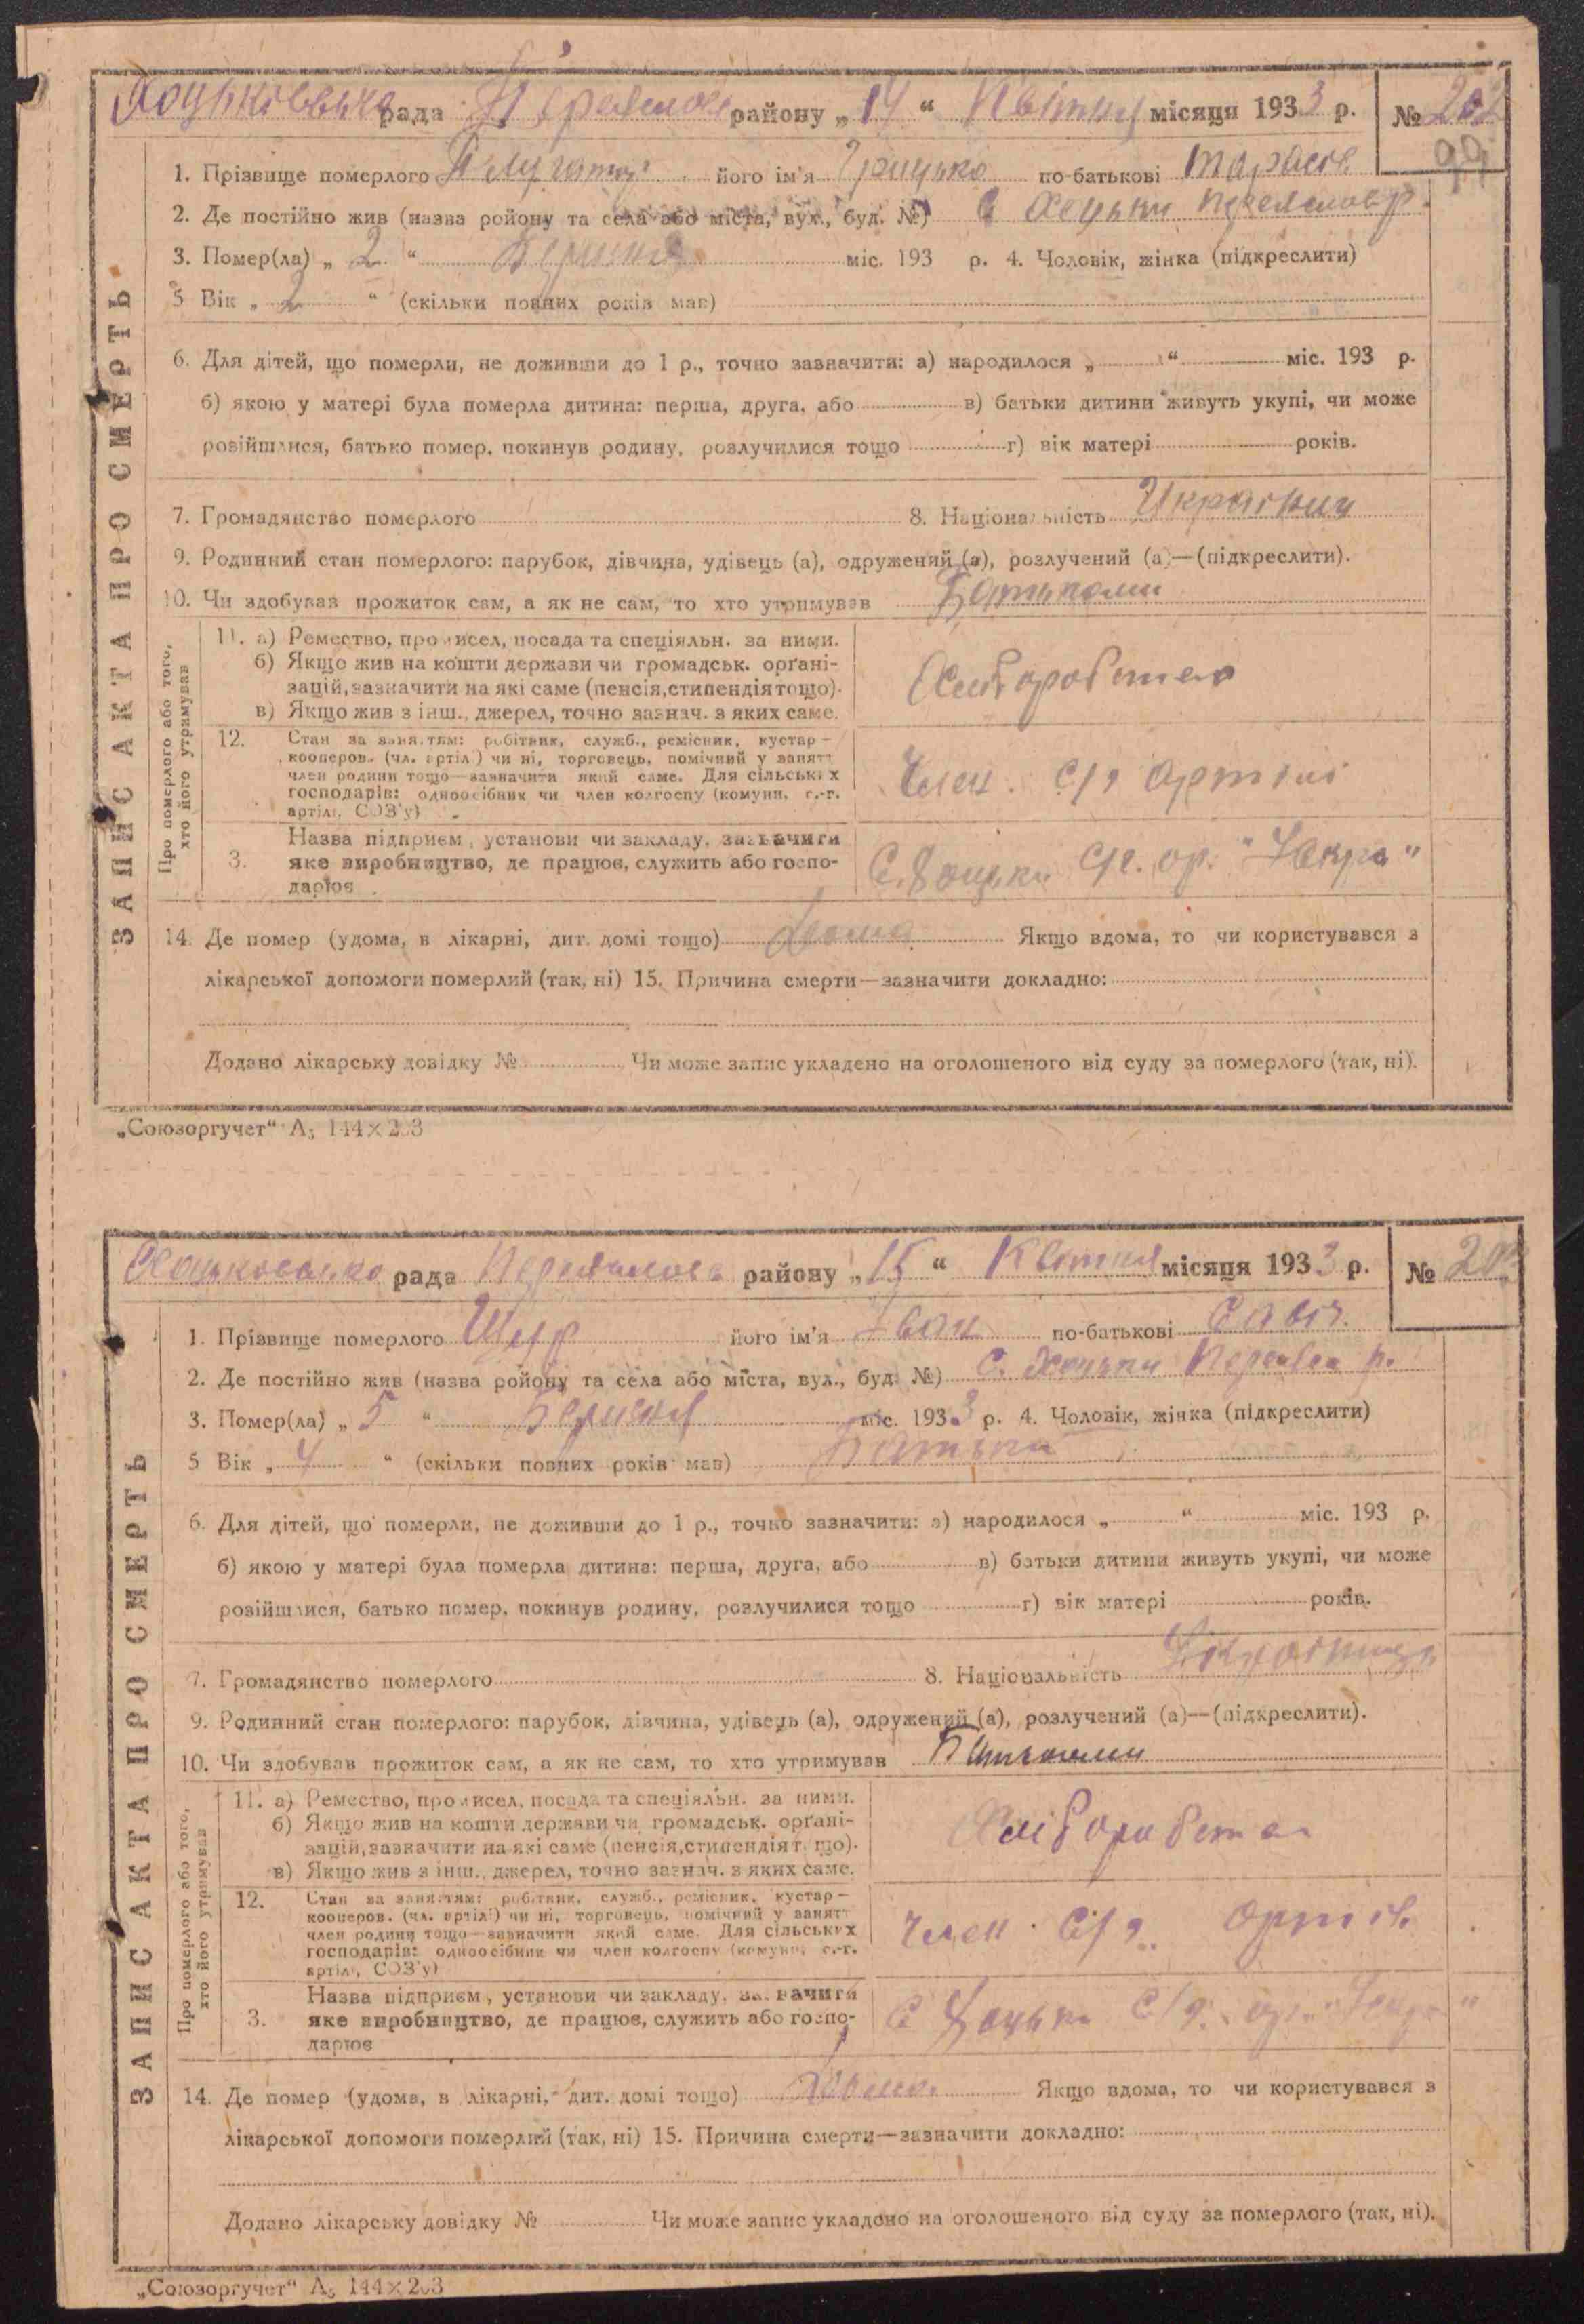 Хоцьківська рада Переяслов району „14“ Квітня місяця 1933 р. № 202
99
ЗАПИС АКТА ПРО СМЕРТЬ
1. Прізвище померлого його ім'я Грицько по-батькові Тарасов
2. Де постійно жив (назва ройону та села або міста, вул., буд. №) с Хоцьки Переяслов р.
3. Помер(ла) „ 2 “ Березня міс. 193 р. 4. Чоловік, жінка (підкреслити)
5 Вік „ 2 “ (скільки повних років мав)
6. Для дітей, що померли, не доживши до 1 р., точно зазначити: а) народилося „ “ міс. 193 р.
б) якою у матері була померла дитина: перша, друга, або в) батьки дитини живуть укупі, чи може
розійшлися, батько помер, покинув родину, розлучилися тощо г) вік матері років.
7. Громадянство померлого 8. Національність Українец
9. Родинний стан померлого: парубок, дівчина, удівець (а), одружений (а), розлучений (а)—(підкреслити).
10. Чи здобував прожиток сам, а як не сам, то хто утримував Батьками
Про померлого або того, хто його утримував
11. а) Ремество, промисел, посада та спеціяльн. за ними.
б) Якщо жив на кошти держави чи громадськ. орґані-
зацій, зазначити на які саме (пенсія, стипендія тощо).
в) Якщо жив з інш., джерел, точно зазнач. з яких саме.
Хліборобство
12. Стан за заняттям: робітник, служб., ремісник, кустар—
кооперов. (чл. артілі) чи ні, торговець, помічний у занятт
член родини тощо—зазначити який саме. Для сільських
господарів: одноосібник чи член колгоспу (комуни, с.-г.
артілі, СОЗ'у)
Член с/г артілі
3. Назва підприєм., установи чи закладу, зазначити
яке виробництво, де працює, служить або госпо-
дарює
С. Хоцьки С/г. ар. "Іскра"
14. Де помер (удома, в лікарні, дит. домі тощо) Дома Якщо вдома, то чи користувався з
лікарської допомоги померлий (так, ні) 15. Причина смерти—зазначити докладно:
Додано лікарську довідку № Чи може запис укладено на оголошеного від суду за померлого (так, ні).
„Союзоргучет“ А₅ 144×203
рада району „15“ Квітня місяця 1933 р. №
ЗАПИС АКТА ПРО СМЕРТЬ
1. Прізвище померлого Щур його ім'я Іван по-батькові Савіч.
2. Де постійно жив (назва ройону та села або міста, вул., буд. №) С. Хоцьки р.
3. Помер(ла) „ 5 “ Березня міс. 1933 р. 4. Чоловік, жінка (підкреслити)
5 Вік „ 4 “ (скільки повних років мав) Батьки
6. Для дітей, що померли, не доживши до 1 р., точно зазначити: а) народилося „ “ міс. 193 р.
б) якою у матері була померла дитина: перша, друга, або в) батьки дитини живуть укупі, чи може
розійшлися, батько помер, покинув родину, розлучилися тощо г) вік матері років.
7. Громадянство померлого 8. Національність
9. Родинний стан померлого: парубок, дівчина, удівець (а), одружений (а), розлучений (а)—(підкреслити).
10. Чи здобував прожиток сам, а як не сам, то хто утримував Батьками
Про померлого або того, хто його утримував
11. а) Ремество, промисел, посада та спеціяльн. за ними.
б) Якщо жив на кошти держави чи громадськ. орґані-
зацій, зазначити на які саме (пенсія, стипендія т. що).
в) Якщо жив з інш., джерел, точно зазнач. з яких саме.
Хліборобство
12. Стан за заняттям: робітник, служб., ремісник, кустар—
кооперов. (чл. артілі) чи ні, торговець, помічний у занятт
член родини тощо—зазначити який саме. Для сільських
господарів: одноосібник чи член колгоспу (комуни, с.-г.
артілі, СОЗ'у)
Член с/г артіл.
3. Назва підприєм., установи чи закладу, зазначити
яке виробництво, де працює, служить або госпо-
дарює
С Хоцьки С/г. ар. "Іскра"
14. Де помер (удома, в лікарні, дит. домі тощо) Якщо вдома, то чи користувався з
лікарської допомоги померлий (так, ні) 15. Причина смерти—зазначити докладно:
Додано лікарську довідку № Чи може запис укладено на оголошеного від суду за померлого (так, ні).
„Союзоргучет“ А₅ 144×203